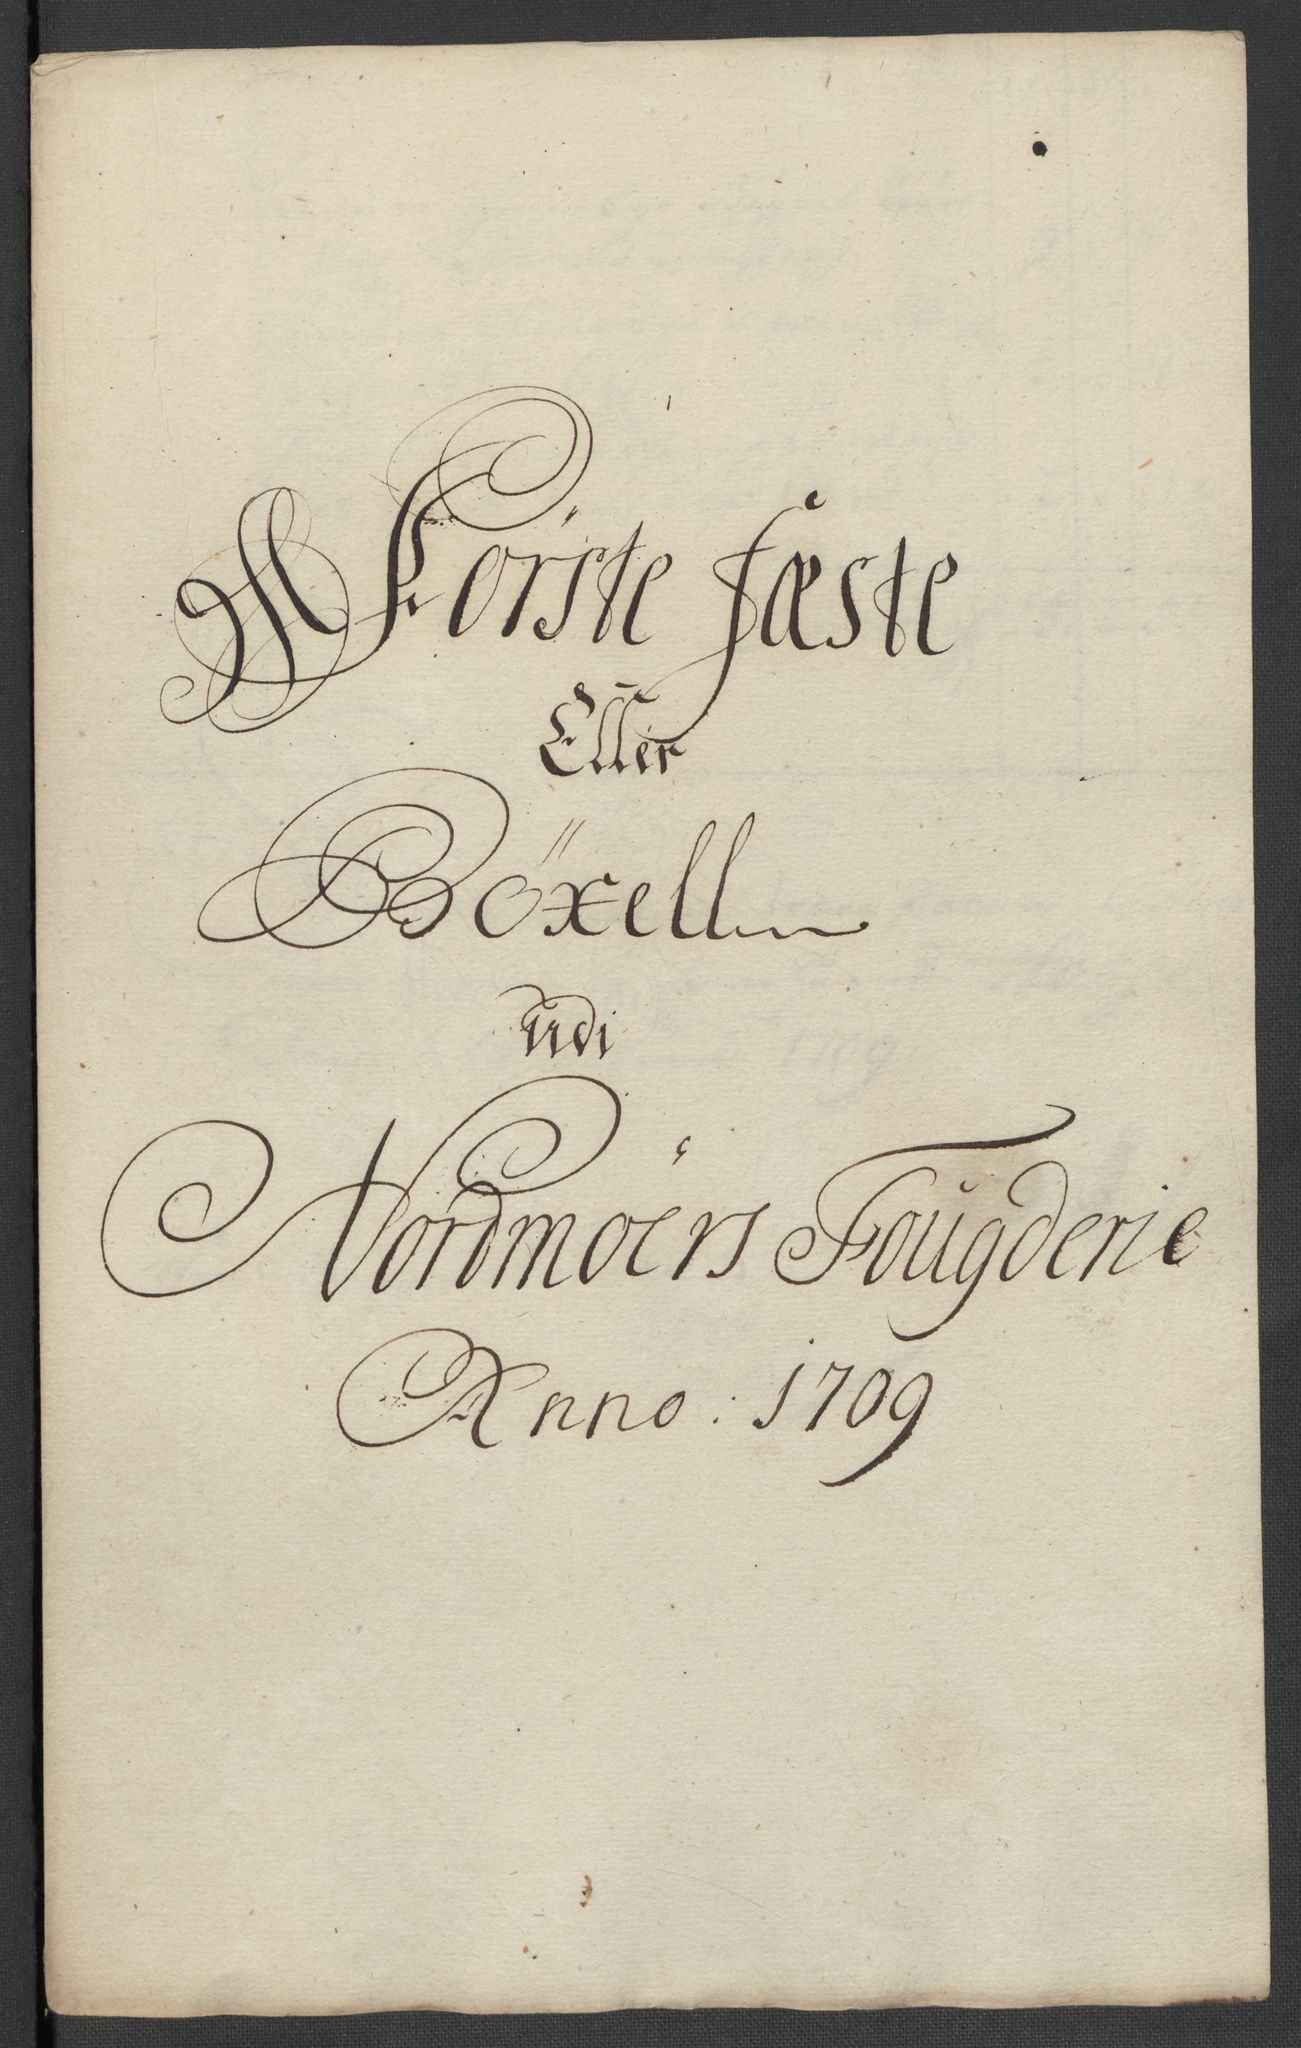 Förste fæste
Eller
Böxell
udi
Nordmoers Fougderie
Anno: 1709